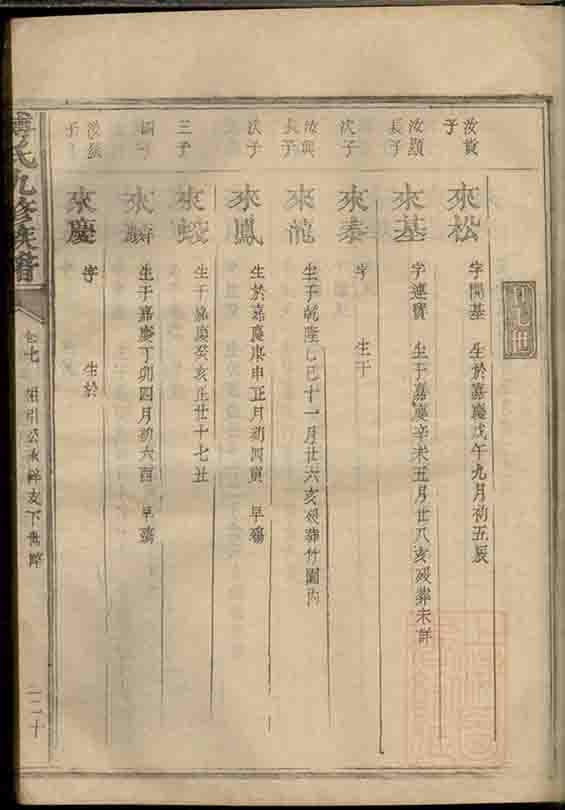 世
汝貴
子
來松
字開基 生於嘉慶戊午九月初五辰
汝顯
長子
來基
字連寶 生于嘉慶辛未五月廿八亥歿葬未詳
次子
來泰
字 生于
汝興
長子
來龍
生于乾隆乙巳十一月廿六亥歿葬竹園內
次子
來鳳
生於嘉慶庚申正月初四寅 早殤
三子
來蛟
生于嘉慶癸亥正廿十七丑
四子
來
生于嘉慶丁卯四月初六酉 早殤
汝
子
來慶
字 生於
氏九修族譜
卷七
祖引公永祥支下世
二十